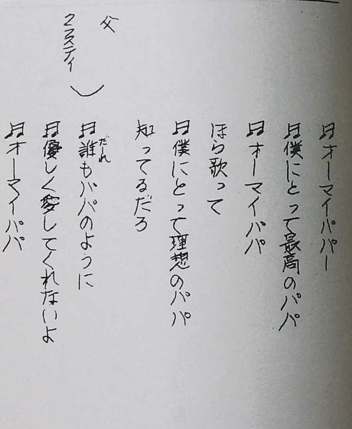 ♬オーマイパパー
♬僕にとって最高のパパ
♬オーマイパパ
ほら歌って
♬僕にとって理想のパパ
知ってるだろ
♬誰もパパのように
だれ
♬優しく愛してくれないよ
♬オーマイパパ
父
クラスティ